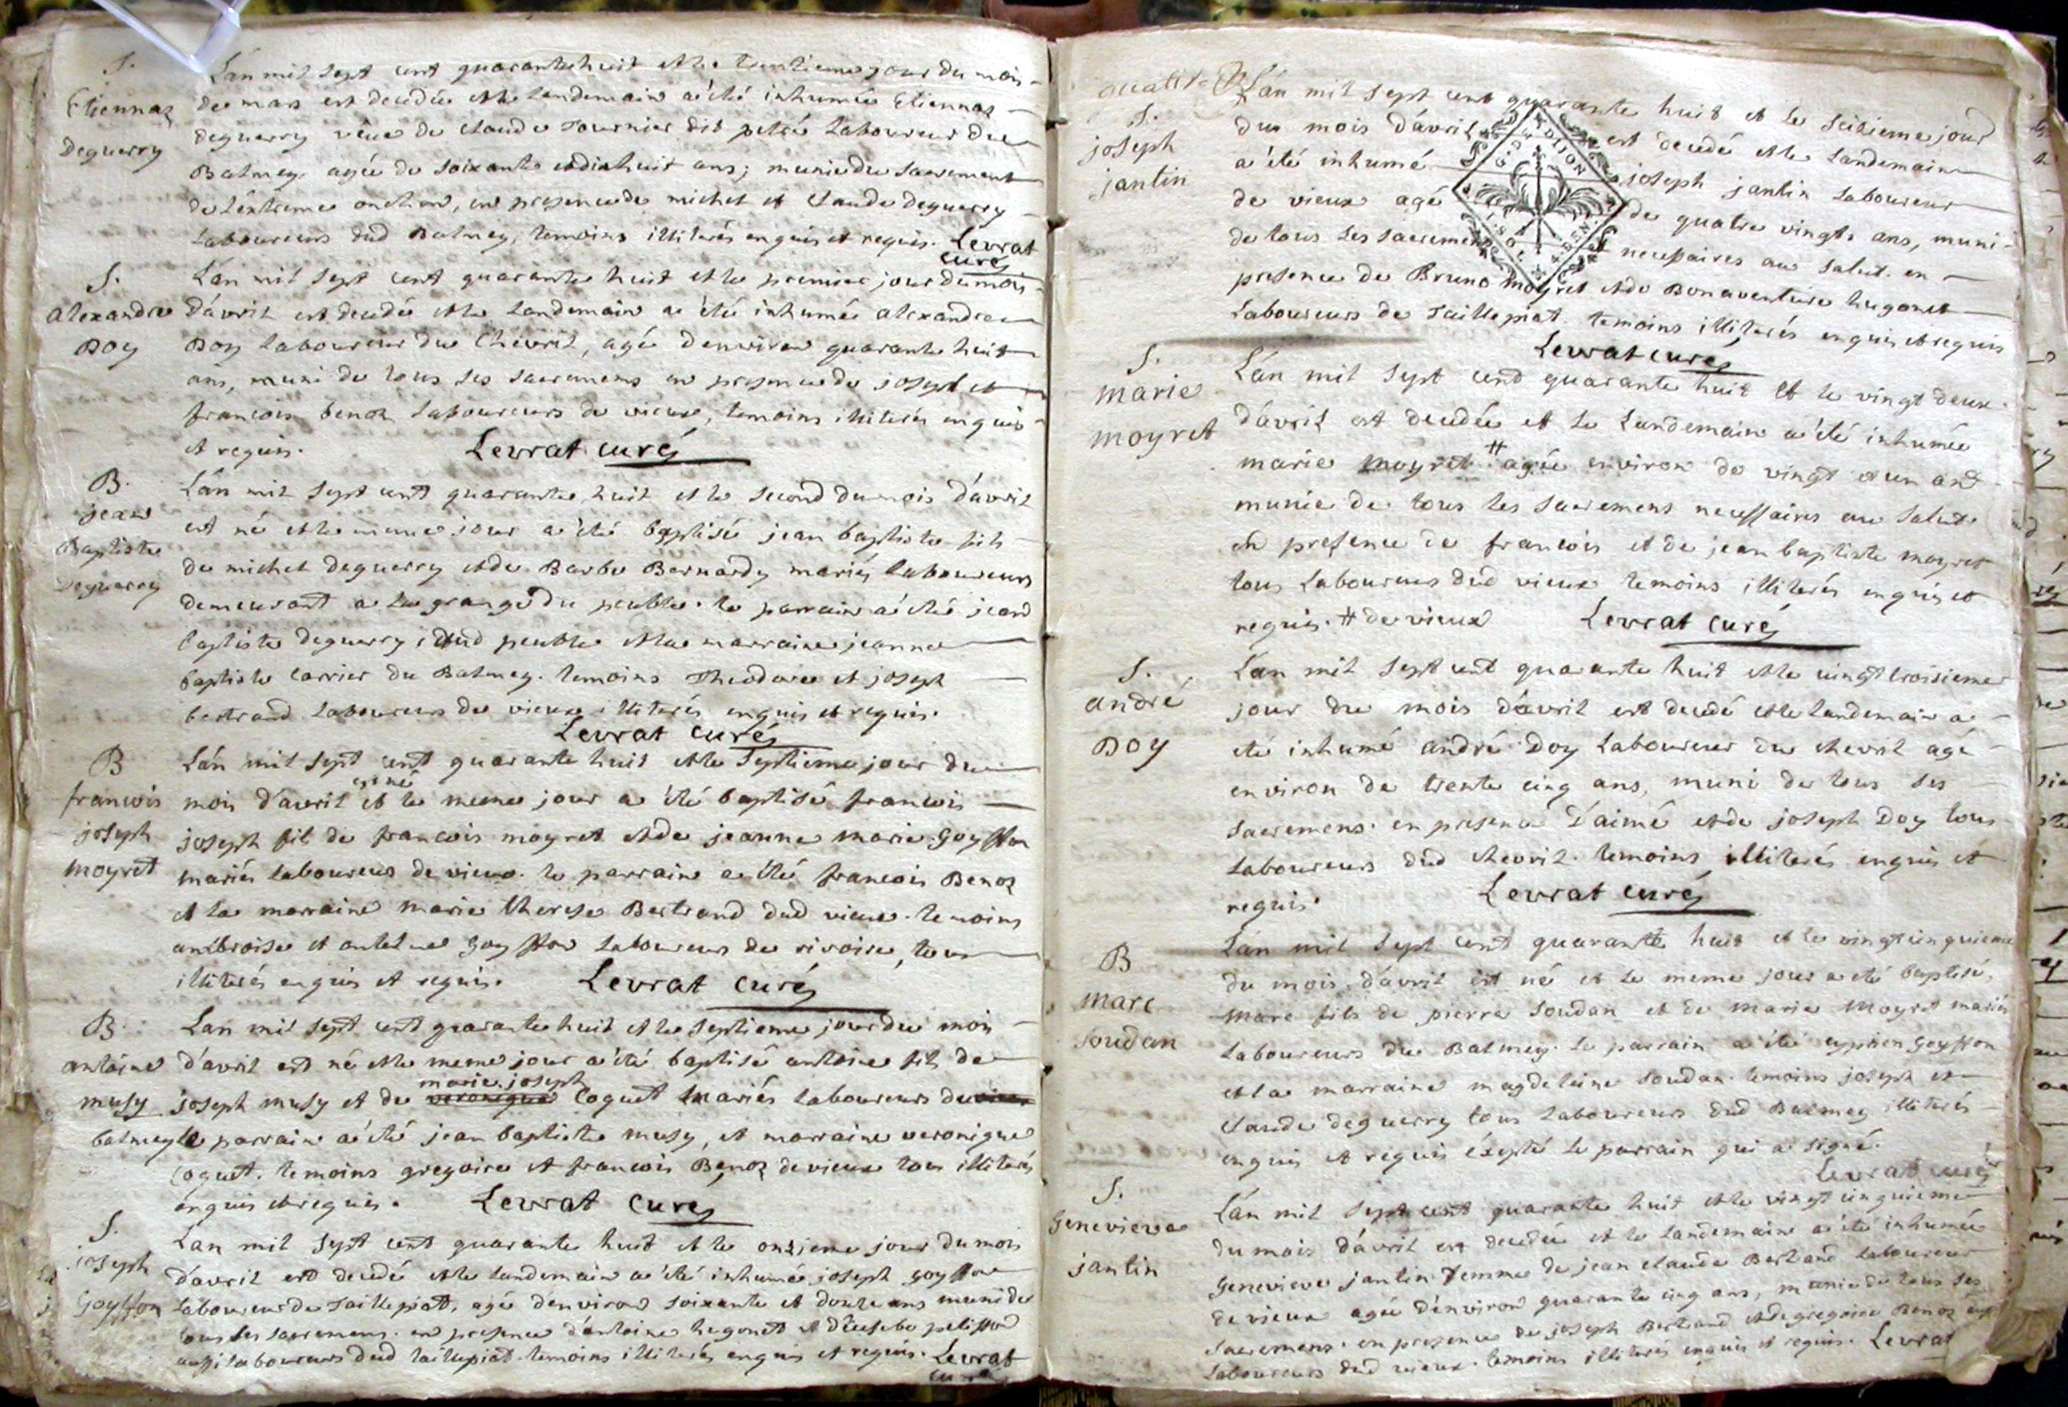 S.
Etiennaz
Deguerry
L'an mil sept cent quarante huit et le trentieme jour du mois
de mars est decedée et le landemain a été inhumée Etiennaz
deguerry veüe de claude Tournier dit laboureur du
Balmey, agée de soixante et dixhuit ans; munie du sacrement
de l'extreme onction, en presence de michel et claude Deguerry
laboureurs dud Balmey, temoins illiterés enquis et requis. Levrat
curé
S.
alexandre
Doy
L'an mil sept cent quarante huit et le premier jour du mois
d'avril est decedé et le landemain a été inhumé alexandre
Doy laboureur du Chevril, agé d'environ quarante huit
ans, muni de tous ses sacremens en presence de joseph et
francois benoz laboureurs de vieux, temoins illiterés enquis
et requis. Levrat curé
B.
jean
Baptiste
Deguerry
L'an mil sept cent quarante huit et le second du mois d'avril
est né et le meme jour a été baptisé jean baptiste fils
de michel deguerry et de Barbe Bernardy mariés laboureurs
demeurant a la grange du peuble. le parrain a été jean
baptiste deguerry dud peuble et la marraine jeanne
baptiste carrier du Balmey. temoins Theodore et joseph
bertrand laboureurs de vieux illiterés enquis et requis.
Levrat curé
B
francois
joseph
moyret
L'an mil sept cent quarante huit et le septieme jour du
est né
mois d'avril et le meme jour a été baptisé francois
joseph fil de francois moyret et de jeanne marie Goyffon
mariés laboureurs de vieux. le parrain a été francois Benoz
et la marraine marie therese Bertrand dud vieux. temoins
ambroise et antelme Goyffon laboureurs de rivoire, tous
illiterés enquis et requis. Levrat curé
B.
antoine
musy
L'an mil sept cent quarante huit et le septieme jour du mois
d'avril est né et le meme jour a été baptisé antoine fils de
marie joseph
joseph musy et de veronique Coquet mariés laboureurs de vieux
balmey le parrain a été jean baptiste musy, et marraine veronique
Coquet. temoins gregoire et francois Benoz de vieux tous illiterés
enquis et requis. Levrat curé
S.
joseph
Goyffon
L'an mil sept cent quarante huit et le onzieme jour du mois
d'avril est decedé et le landemain a été inhumé joseph goyffon
laboureur de Taillepiat, agé d'environ soixante et douze ans muni de
tous ses sacremens. en presence d'antoine hugonet et d'eusebe pelisson
aussi laboureurs dud taillepiat. temoins illiterés enquis et requis. Levrat
curé
S.
joseph
jantin
L'an mil sept cent quarante huit et le seizieme jour
du mois d'avril est decedé et le landemain
a été inhumé joseph jantin laboureur
de vieux agé de quatre vingt ans, muni
de tous les sacremens necessaires au salut. en
presence de Bruno moyret et de Bonaventure hugonet
laboureurs de Taillepiat temoins illiterés enquis et requis
Levrat curé
G. DE DIJON
S.
marie
moyret
L'an mil sept cent quarante huit et le vingt deux
d'avril est decedée et le landemain a été inhumée
marie moyret # agée environ de vingt et un ans
munie de tous les sacremens necessaires au salut.
en presence de francois et de jean baptiste moyret
tous laboureurs dud vieux temoins illiterés enquis et
requis. # de vieux Levrat curé
S.
andré
Doy
L'an mil sept cent quarante huit et le vingt troisieme
jour du mois d'avril est decedé et le landemain a
eté inhumé andré Doy laboureur du chevril agé
environ de trente cinq ans, muni de tous ses
sacremens. en presence d'aimé et de joseph Doy tous
laboureurs dud chevril. temoins illiterés enquis et
requis. Levrat curé
B
marc
soudan
L'an mil sept cent quarante huit et le vingt cinquieme
du mois d'avril est né et le meme jour a été baptisé
marc fils de pierre soudan et de marie moyret mariés
laboureurs du Balmey. le parrain a été cyprien goyffon
et la marraine magdeleine soudan. temoins joseph et
claude deguerry tous laboureurs dud Balmey illiterés
enquis et requis éxepté le parrain qui a signé.
Levrat curé
S.
Genevieve
jantin
L'an mil sept cent quarante huit et le vingt cinquieme
du mois d'avril est decedée et le landemain a été inhumée
Genevieve jantin femme de jean claude Bertrand laboureur
de vieux agée d'environ quarante cinq ans, munie de tous ses
sacremens. en presence de joseph Bertrand et de gregoire Benoz
laboureurs dud vieux. temoins illiterés enquis et requis. Levrat